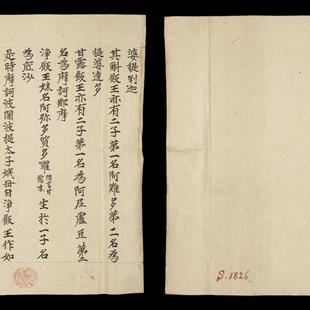 婆提唎迦
其斛飯王亦有二子第一名阿難多第二名為
提婆達多
甘露飯王亦有二子第一名為阿尼盧豆第二
名為摩訶那摩
淨飯王妹名阿弥多質多囉 隋言甘露味 生於一子名
為底沙
是時摩訶波闍波提太子姨母白淨飯王作如
S.1826